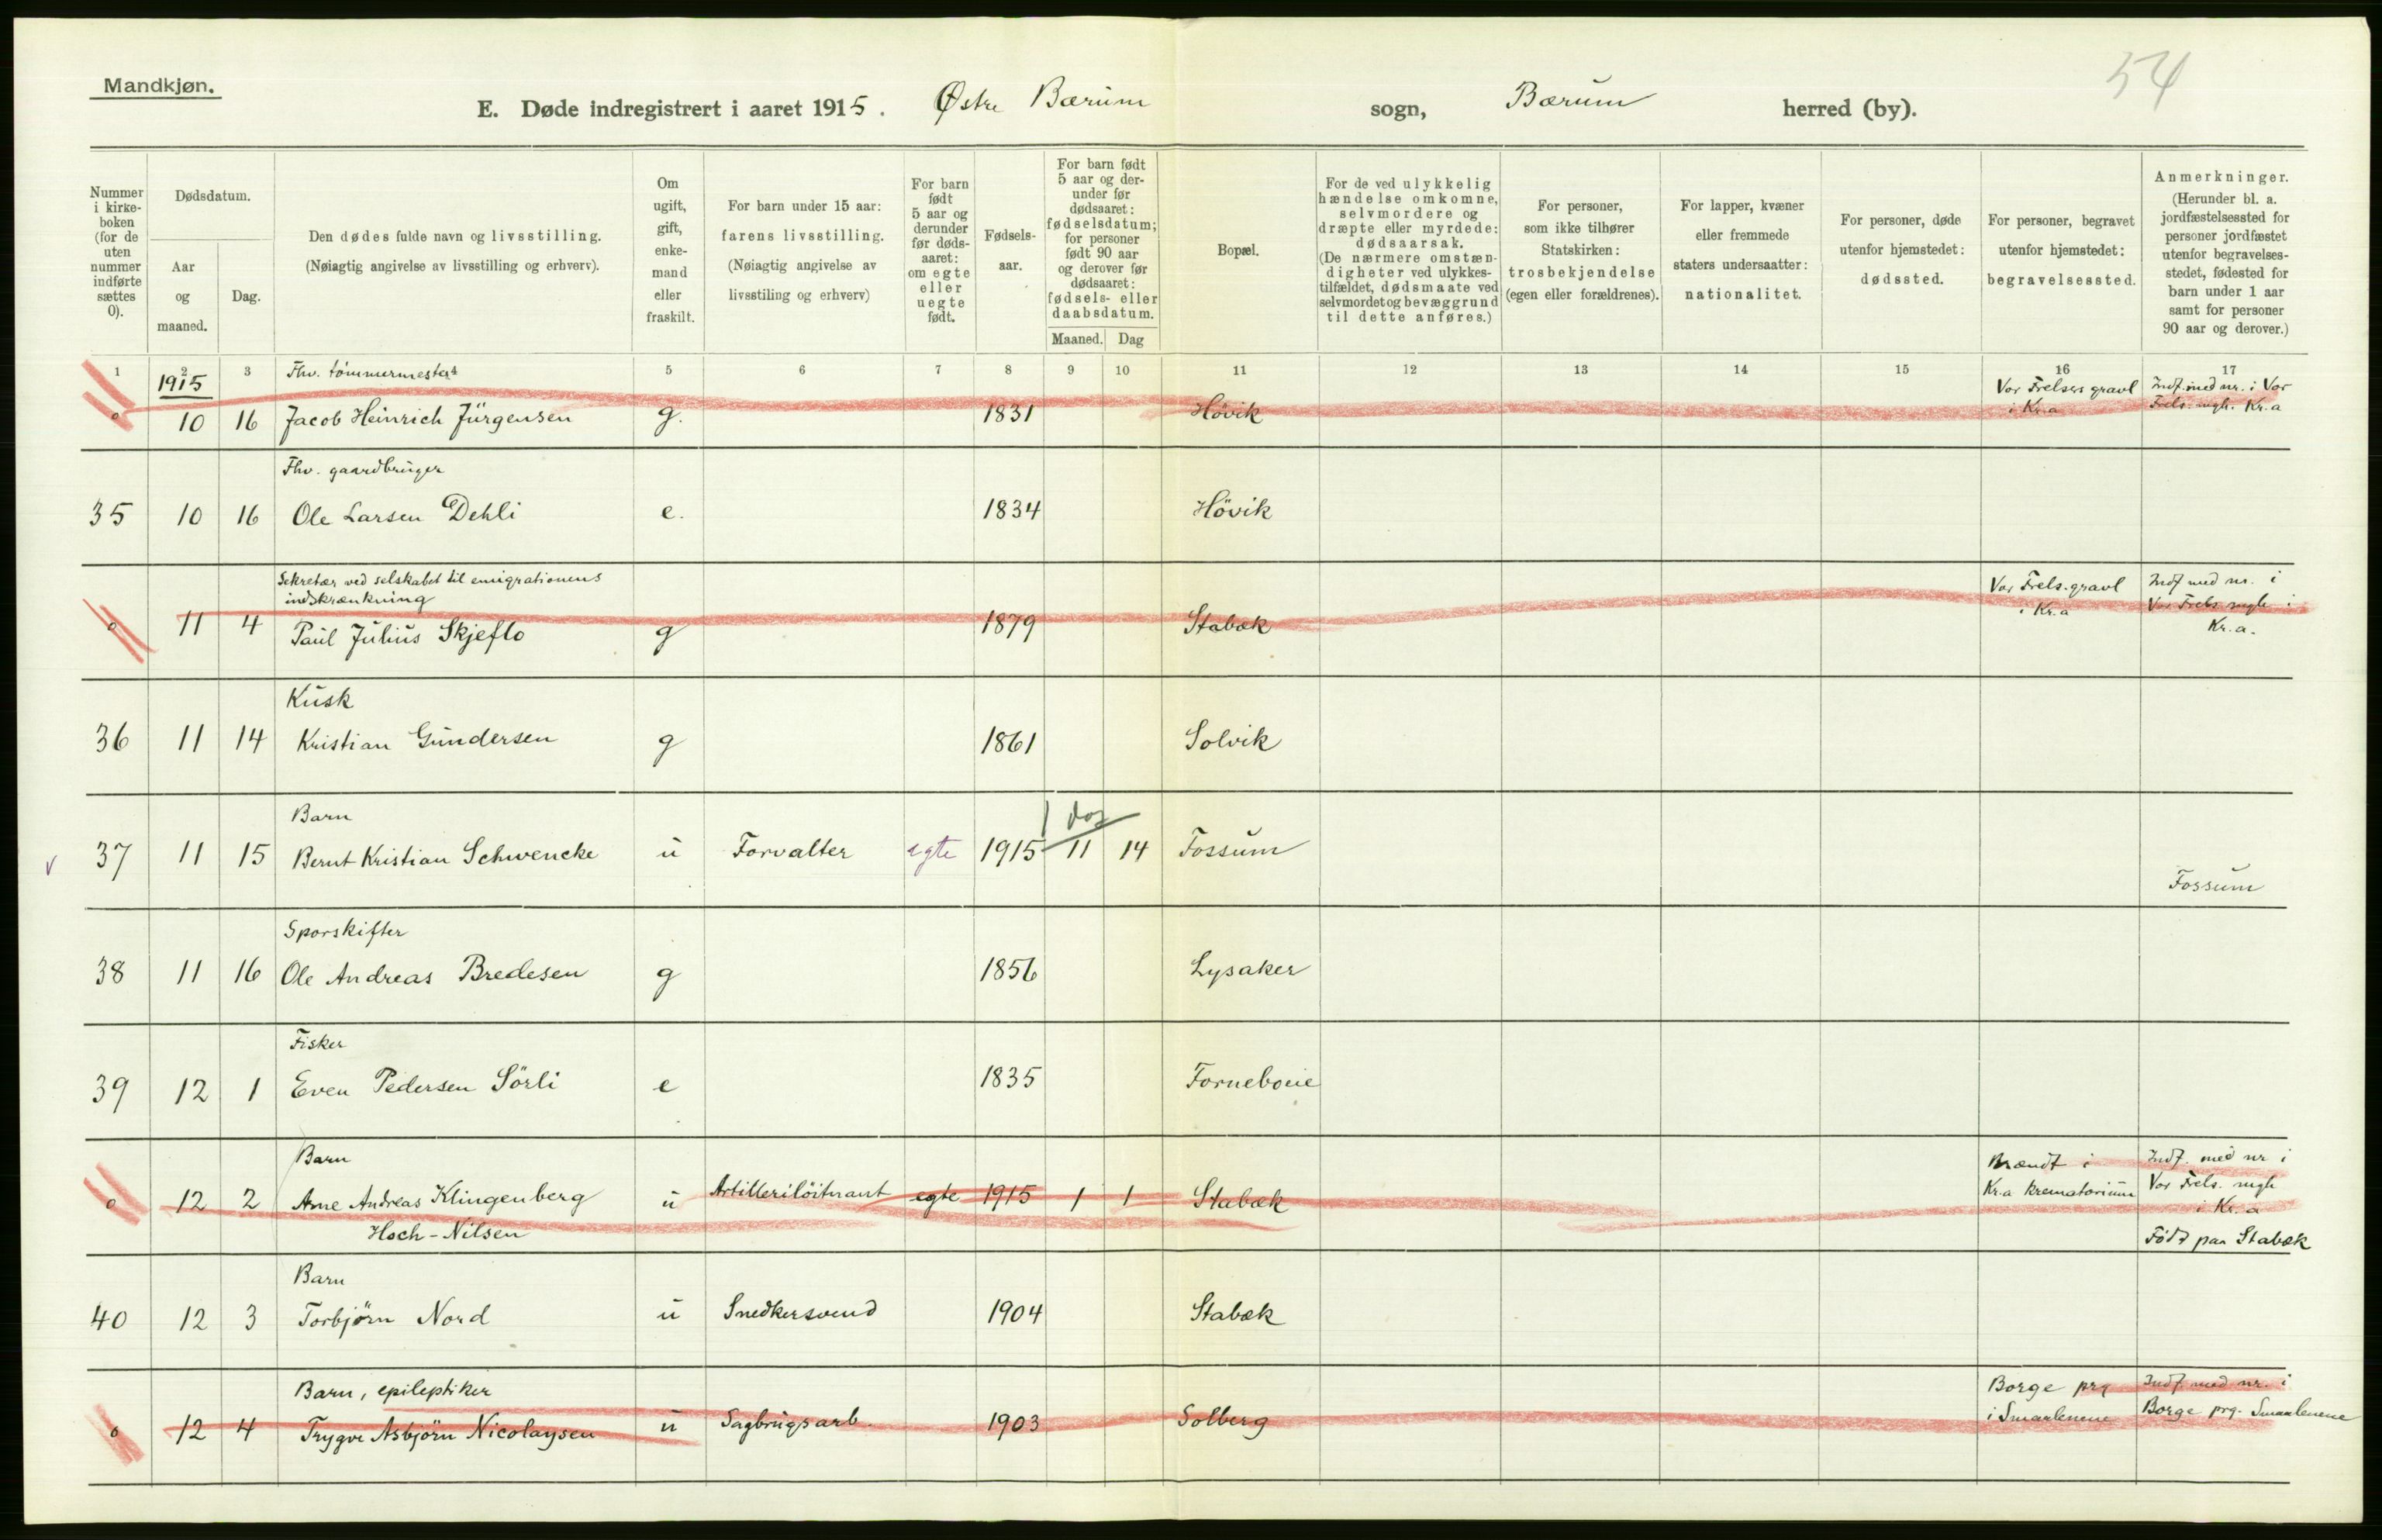 Mandkjøn.
54
E. Døde indregistrert i aaret 1915. Østre Bærum sogn, Bærum herred (by).
Nummer i kirke-boken (for de uten nummer indførte sættes 0).
Dødsdatum.
Aar og maaned.
Dag.
Den dødes fulde navn og livsstilling.
(Nøiagtig angivelse av livsstilling og erhverv).
Om ugift, gift, enke-mand eller fraskilt.
For barn under 15 aar: farens livsstilling.
(Nøiagtig angivelse av livsstiling og erhverv)
For barn født 5 aar og derunder før døds-aaret: om egte eller uegte født.
Fødsels-aar.
For barn født 5 aar og der-under før dødsaaret: fødselsdatum; for personer født 90 aar og derover før dødsaaret: fødsels- eller daabsdatum.
Maaned. Dag
Bopæl.
For de ved ulykkelig hændelse omkomne, selvmordere og dræpte eller myrdede: dødsaarsak.
(De nærmere omstæn-digheter ved ulykkes-tilfældet, dødsmaate ved selvmordet og bevæggrund til dette anføres.)
For personer, som ikke tilhører Statskirken: trosbekjendelse (egen eller forældrenes).
For lapper, kvæner eller fremmede staters undersaatter: nationalitet.
For personer, døde utenfor hjemstedet: dødssted.
For personer, begravet utenfor hjemstedet: begravelsessted.
Anmerkninger.
(Herunder bl. a. jordfæstelsessted for personer jordfæstet utenfor begravelses-stedet, fødested for barn under 1 aar samt for personer 90 aar og derover.)
1 2 3 5 6 7 8 9 10 11 12 13 14 15 16 17
1915
Fhv. tømmermester
0 10 16 Jacob Heinrich Jürgensen g. 1831 Hövik Vor Frelsers gravl i Kr.a Indf. med nr. i Vor Frels. mgh. Kr.a
Fhv. gaardbruger
35 10 16 Ole Larsen Dehli e. 1834 Hövik
Sekretær ved selskabet til emigrationens
indskrænkning
0 11 4 Paul Julius Skjeflo g 1879 Stabæk Vor Frels. gravl i Kr.a Indf med nr. i Vor Frels mgh i Kr.a.
Kusk
36 11 14 Kristian Gundersen g 1861 Solvik
Barn
1 dag
37 11 15 Bernt Kristian Schwencke u Forvalter egte 1915 11 14 Fossum Fossum
Sporskifter
38 11 16 Ole Andreas Bredesen g 1856 Lysaker
Fisker
39 12 1 Even Pedersen Sörli e 1835 Forneboeie
Barn
0 12 2 Arne Andreas Klingenberg Hoch-Nilsen u Artilleriløitnant egte 1915 1 1 Stabæk Brændt i Kr.a krematorium Indf. med nr i Vor Frels. mgh i Kr.a
Född paa Stabæk
Barn
40 12 3 Torbjörn Nord u Snedkersvend 1904 Stabæk
Barn, epileptiker
0 12 4 Trygve Asbjörn Nicolaysen u Sagbrugsarb. 1903 Solberg Borge prg i Smaalenene Indf med nr. i Borge prg. Smaalenene